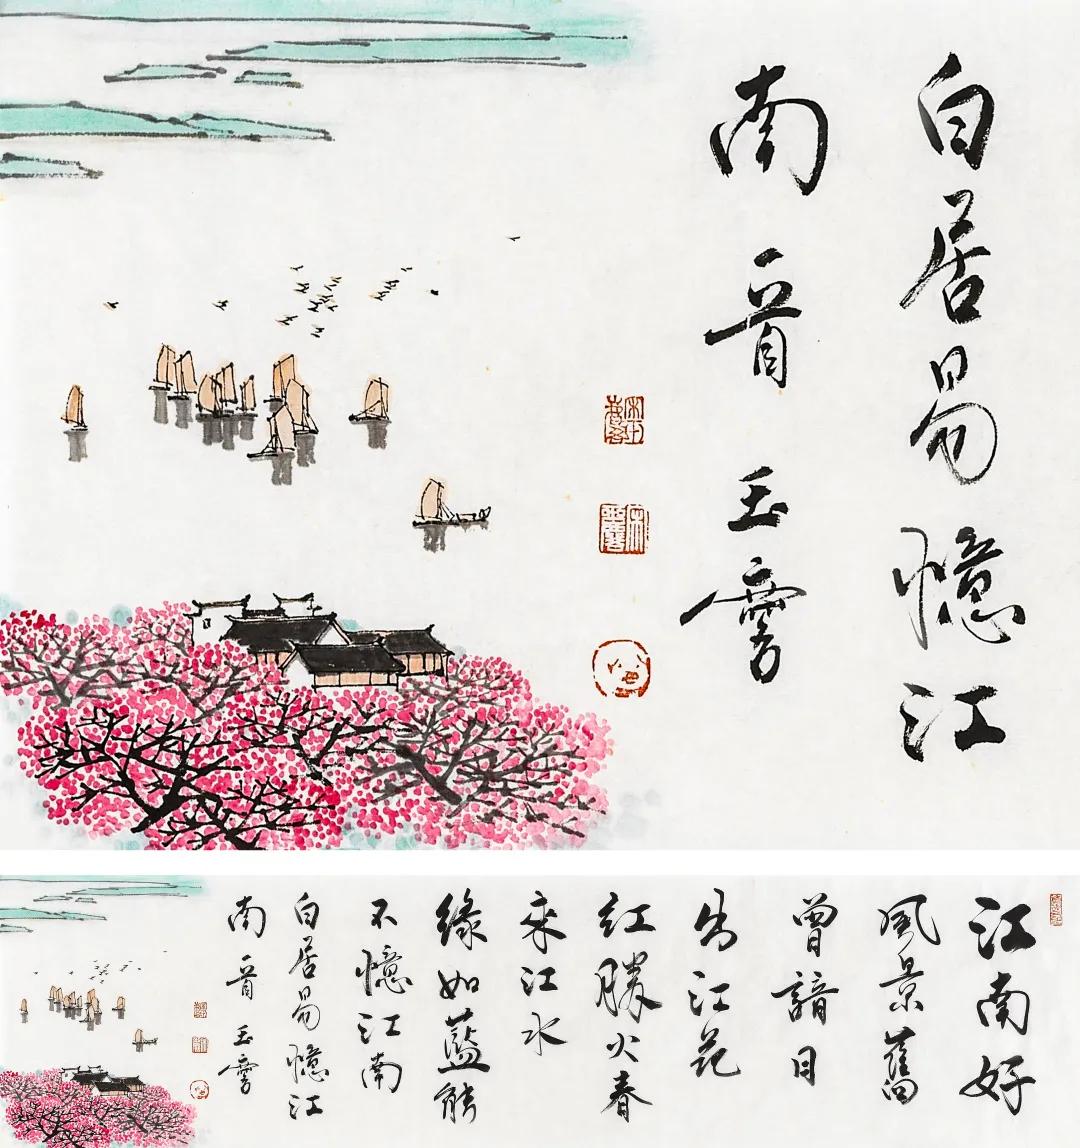 白居易憶江
南一首 玉麐
江南好
風景舊
曾諳日
出江花
紅勝火春
來江水
綠如藍能
不憶江南
白居易憶江
南一首 玉麐